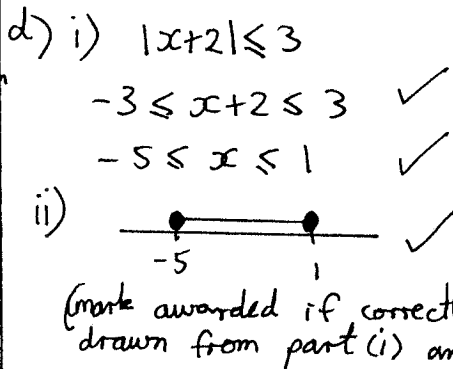 d) i) |x+2| ≤ 3
-3 ≤ x+2 ≤ 3 ✓
-5 ≤ x ≤ 1 ✓
ii) ✓
-5 1
(mark awarded if correctl
drawn from part (i) an